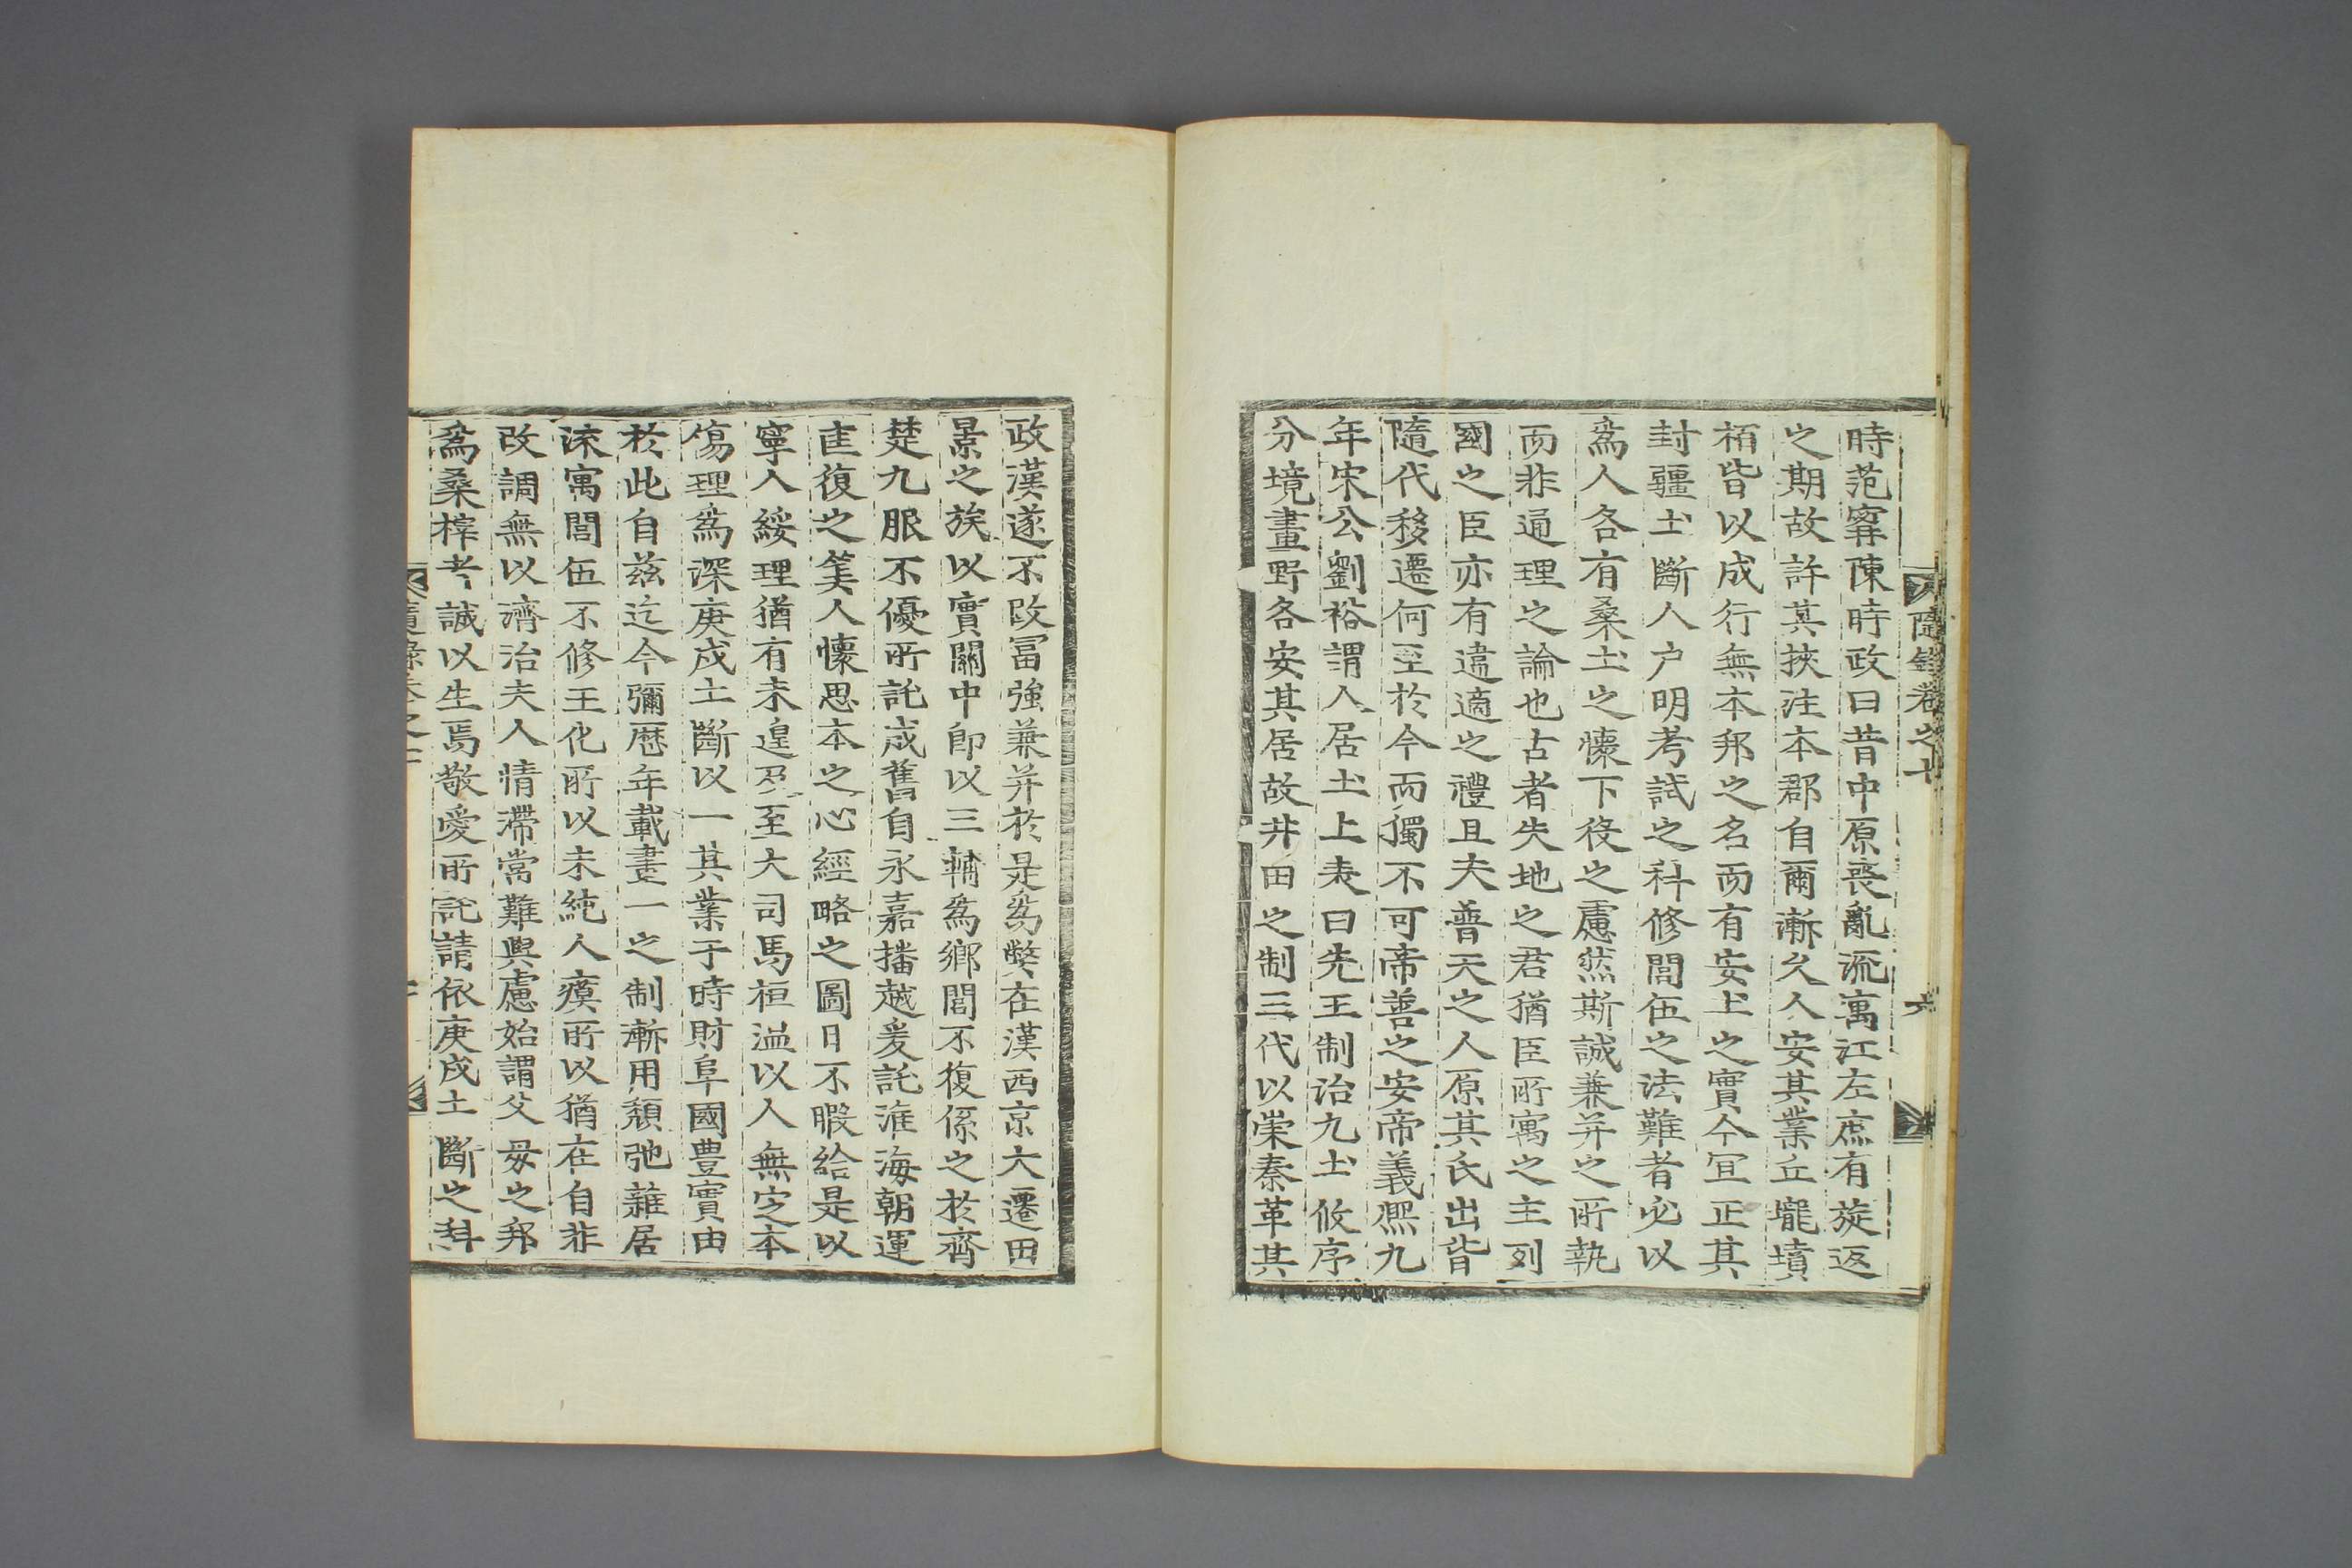 隨錄卷之七
六
時范寗陳時政曰昔中原喪亂流寓江左庶有旋返
之期故許其挾注本郡自爾漸久人安其業丘壠墳
栢皆以成行無本邦之名而有安土之實今宜正其
封疆土斷人户明考試之科修閭伍之法難者必以
爲人各有桑土之懷下役之慮然斯誠兼并之所執
而非通理之論也古者失地之君猶臣所寓之主列
國之臣亦有違適之禮且夫普天之人原其氏出皆
隨代移遷何至於今而獨不可帝善之安帝義熙九
年宋公劉裕謂人居土上表曰先王制治九土攸序
分境畫野各安其居故井田之制三代以崇秦革其
政漢遂不改冨強兼并於是爲弊在漢西京大遷田
景之族以實關中即以三輔爲鄉閭不復係之於齊
楚九服不優所託成舊自永嘉播越爰託淮海朝運
匡復之筭人懷思本之心經略之圖日不暇給是以
寧人綏理猶有未遑及至大司馬桓溫以人無定本
傷理爲深庚戌土斷以一其業于時財阜國豊實由
於此自兹迄今彌歷年載畫一之制漸用頹弛雜居
流寓閭伍不修王化所以未純人瘼所以猶在自非
改調無以濟治夫人情滯常難與慮始謂父母之邦
爲桑梓者誠以生焉敬愛所託請依庚戌土斷之科